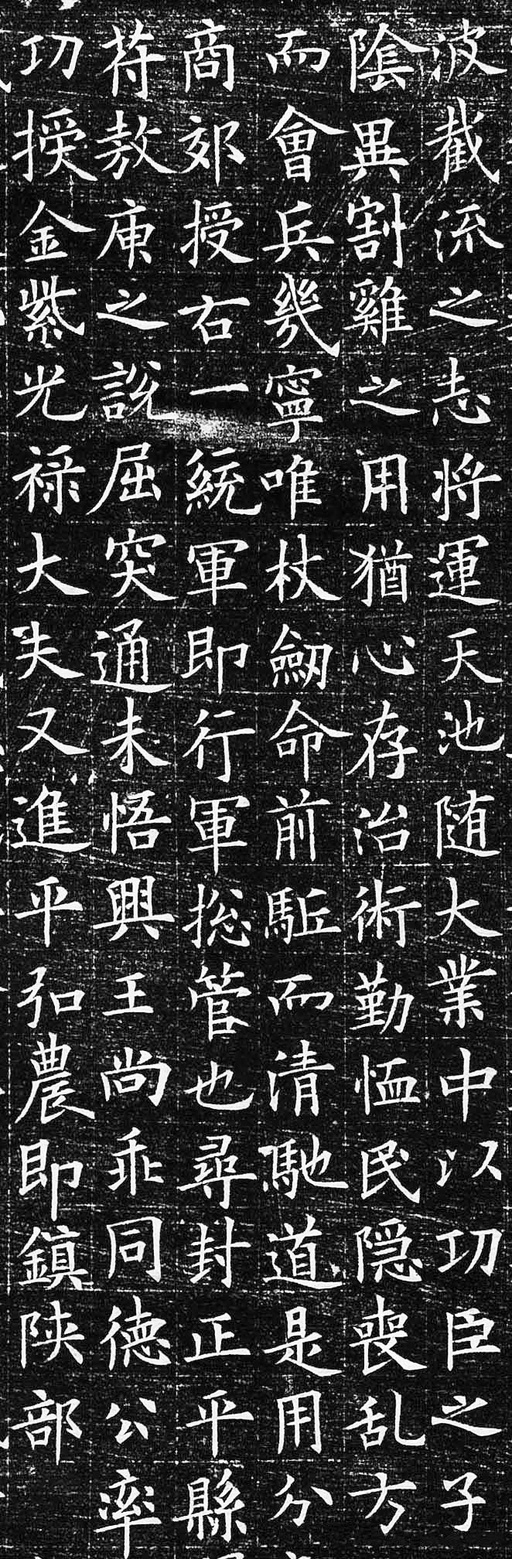 波截流之志将運天池随大業中以功臣之子
陰異割雞之用猶心存治術勤恤民隐喪乱方
而會兵義寧唯杖劒命前駈而清馳道是用分
商郊授右一統軍即行軍捴管也尋封正平縣
苻敖庚之說屈突通未悟興王尚乖同德公率
功授金紫光禄大夫又進平弘農即鎮陝部